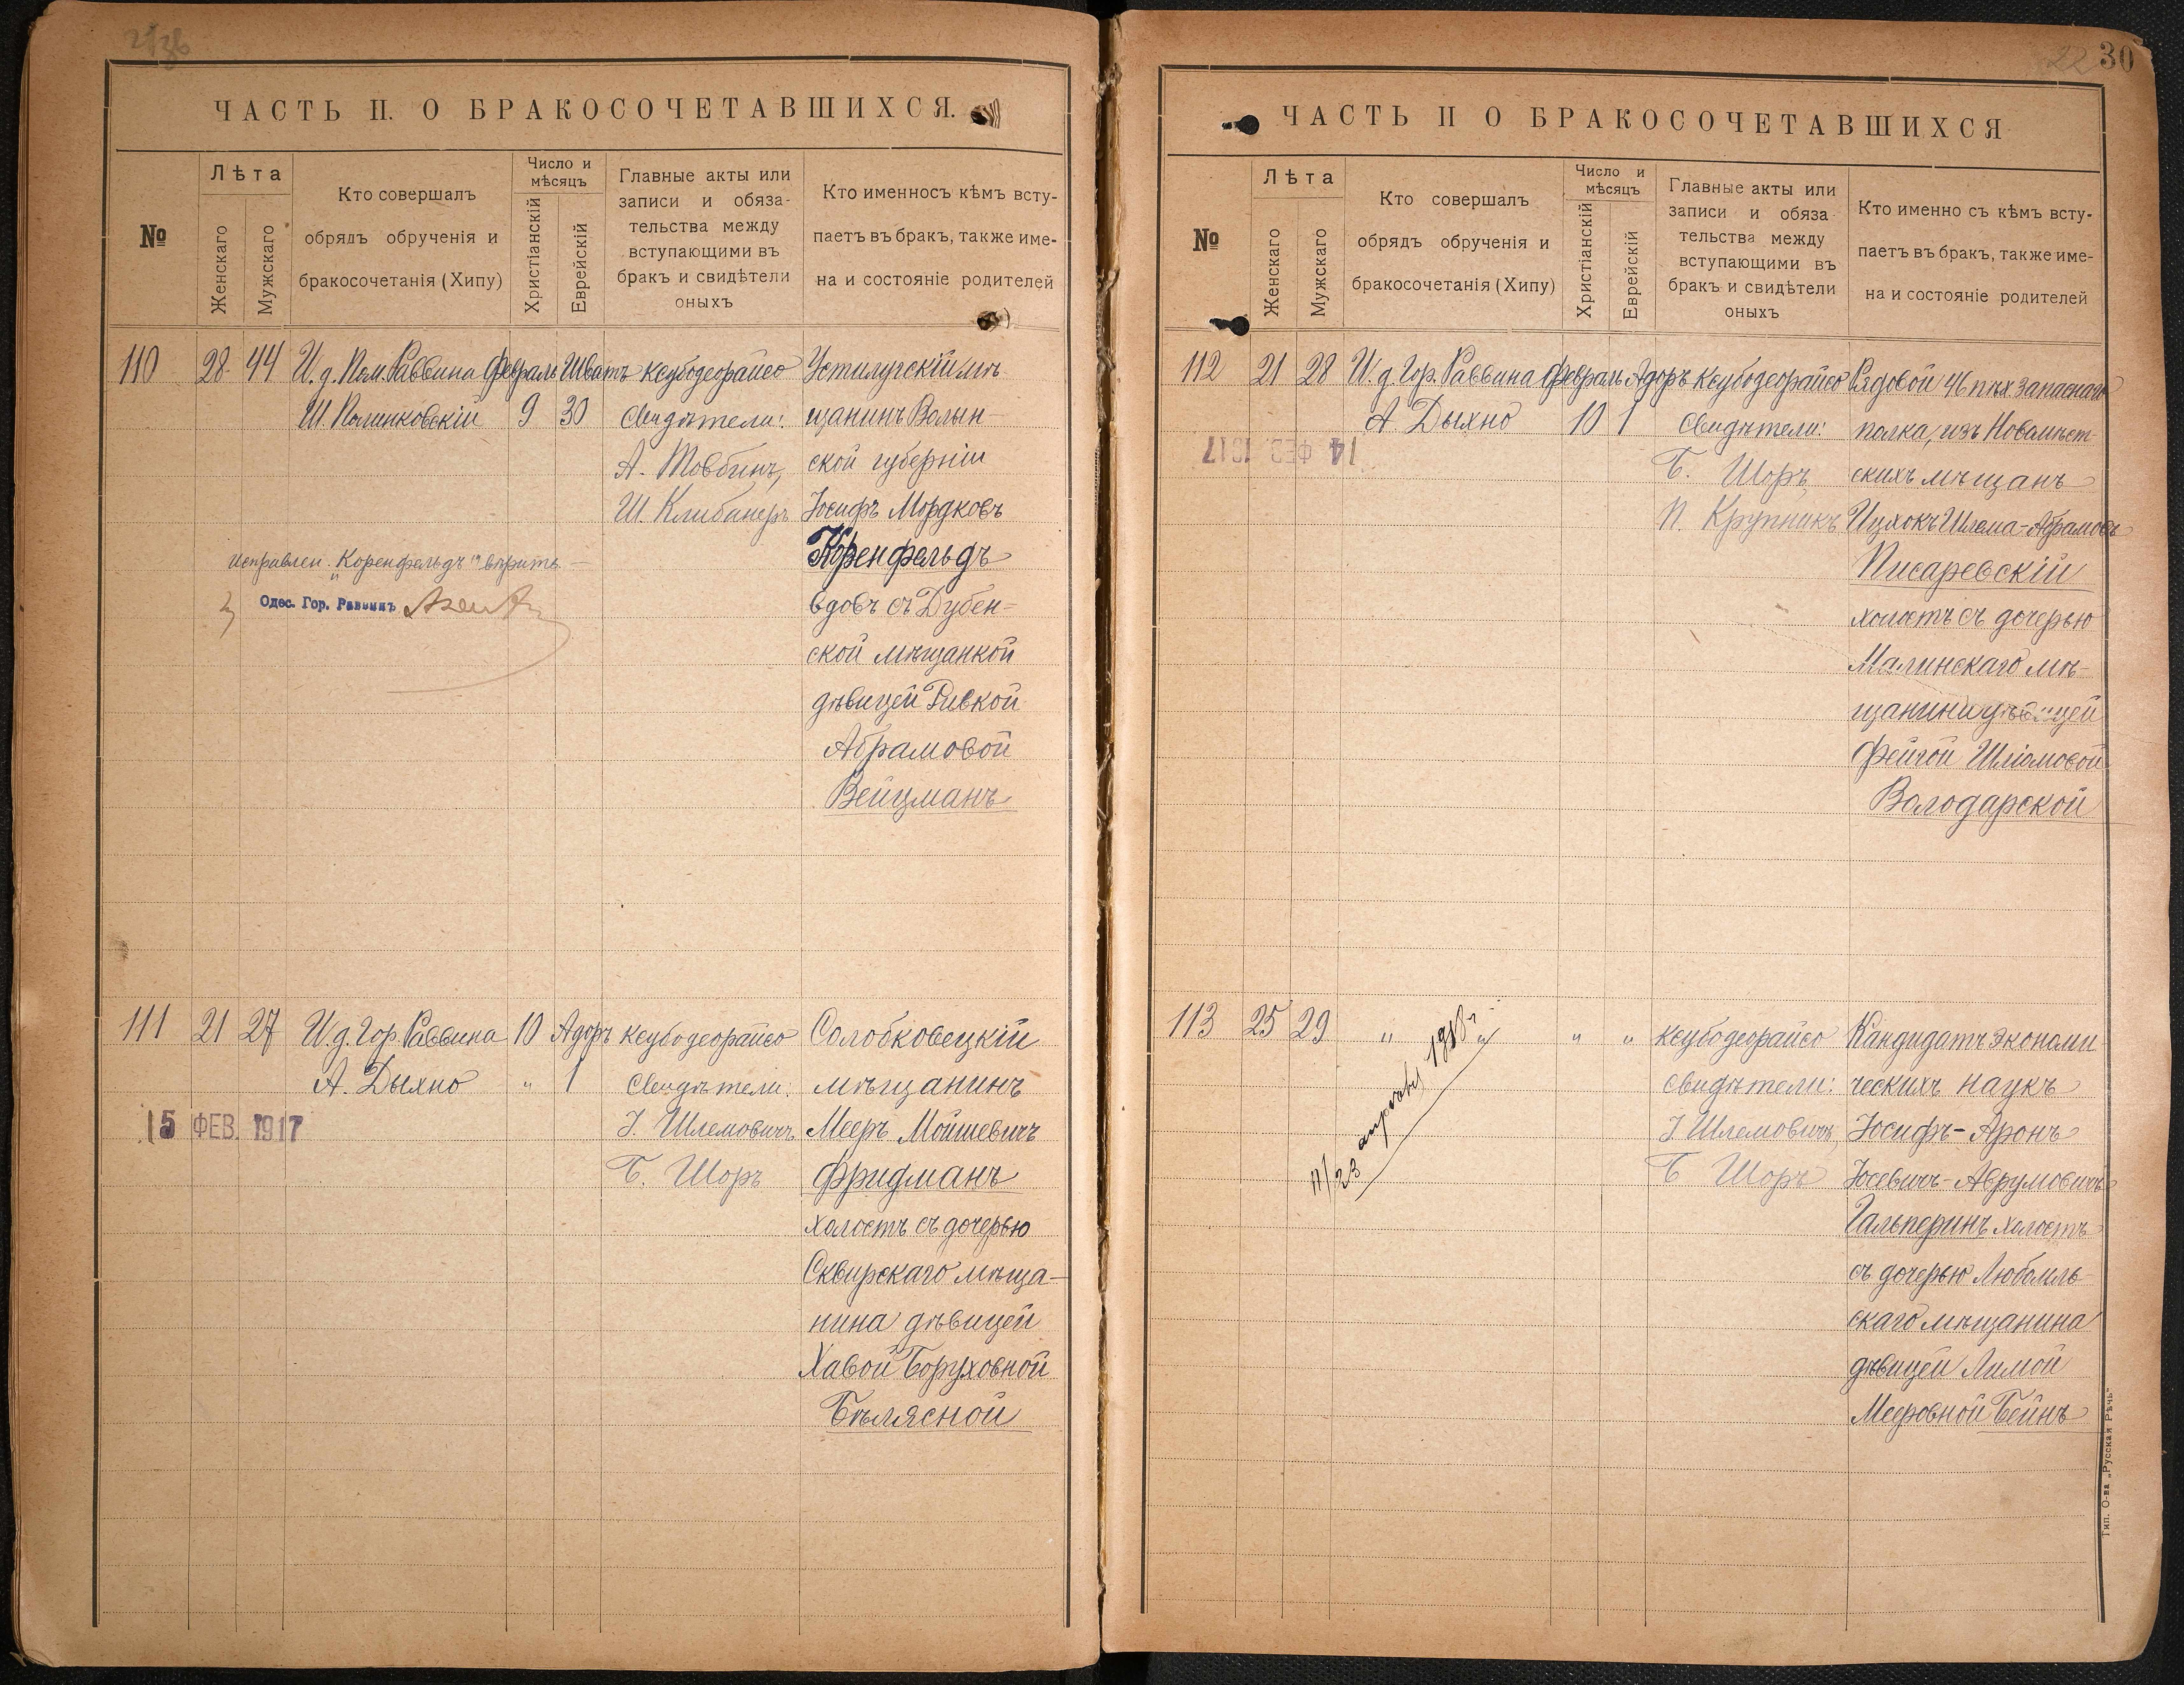 ЧАСТЬ II. О БРАКОСОЧЕТАВШИХСЯ.
№
Лѣта
Женскаго
Мужскаго
Кто совершалъ
обрядъ обрученія и
бракосочетанія (Хипу)
Число и
мѣсяцъ
Христіанскій
Еврейскій
Главные акты или
записи и обяза-
тельства между
вступающими въ
бракъ и свидѣтели
оныхъ
Кто именносъ кѣмъ всту-
паетъ въ бракъ, также име-
на и состояніе родителей
110
28
44
И. д. Пом. Раввина
Ш. Полинковскій
Февраль
9
Шватъ
30
Ксубодеорайсо
Свидѣтели:
А. Товбинъ,
Ш. Клибанеръ
Устилугскій мѣ-
щанинъ Волын-
ской губерніи
Іосифъ Мордковъ
Коренфельдъ
вдовъ съ Дубен-
ской мѣщанкой
дѣвицей Ривкой
Абрамовой
Вейцманъ
исправлен. „Коренфельдъ" вѣрить
Одес. Гор. Раввинъ
111
21
27
И. д. Гор. Раввина
А. Дыхно
10
"
Адоръ
1
Ксубодеорайсо
Свидѣтели:
І. Шлемовичъ,
Б. Шоръ
Солобковецкій
мѣщанинъ
Мееръ Мойшевичъ
Фридманъ
холостъ съ дочерью
Сквирскаго мѣща-
нина дѣвицей
Хавой Боруховной
Бѣлясной
15 ФЕВ. 1917
30
22
ЧАСТЬ II О БРАКОСОЧЕТАВШИХСЯ
№
Лѣта
Женскаго
Мужскаго
Кто совершалъ
обрядъ обрученія и
бракосочетанія (Хипу)
Число и
мѣсяцъ
Христіанскій
Еврейскій
Главные акты или
записи и обяза-
тельства между
вступающими въ
бракъ и свидѣтели
оныхъ
Кто именно съ кѣмъ всту-
паетъ въ бракъ, также име-
на и состояніе родителей
112
21
28
И. д. Гор. Раввина
А. Дыхно
Февраль
10
Адоръ
1
Ксубодеорайсо
Свидѣтели:
Б. Шоръ,
П. Крупникъ
Рядовой 46 пѣх запаснаго
полка, изъ Новомѣст-
скихъ мѣщанъ
Ицхокъ Шлема-Абрамовъ
Писаревскій
холостъ съ дочерью
Малинскаго мѣ-
щанина дѣвицей
Фейгой Шліомовой
Володарской
14 ФЕВ. 1917
113
25
29
"
"
"
"
Ксубодеорайсо
Свидѣтели:
І. Шлемовичъ,
Б. Шоръ
Кандидатъ экономи-
ческихъ наукъ
Іосифъ-Аронъ
Іосевичъ-Аврумовичъ
Гальперинъ холостъ
съ дочерью Любомль-
скаго мѣщанина
дѣвицей Лимой
Мееровной Бейнъ
Тип. О-ва „Русская Рѣчь"